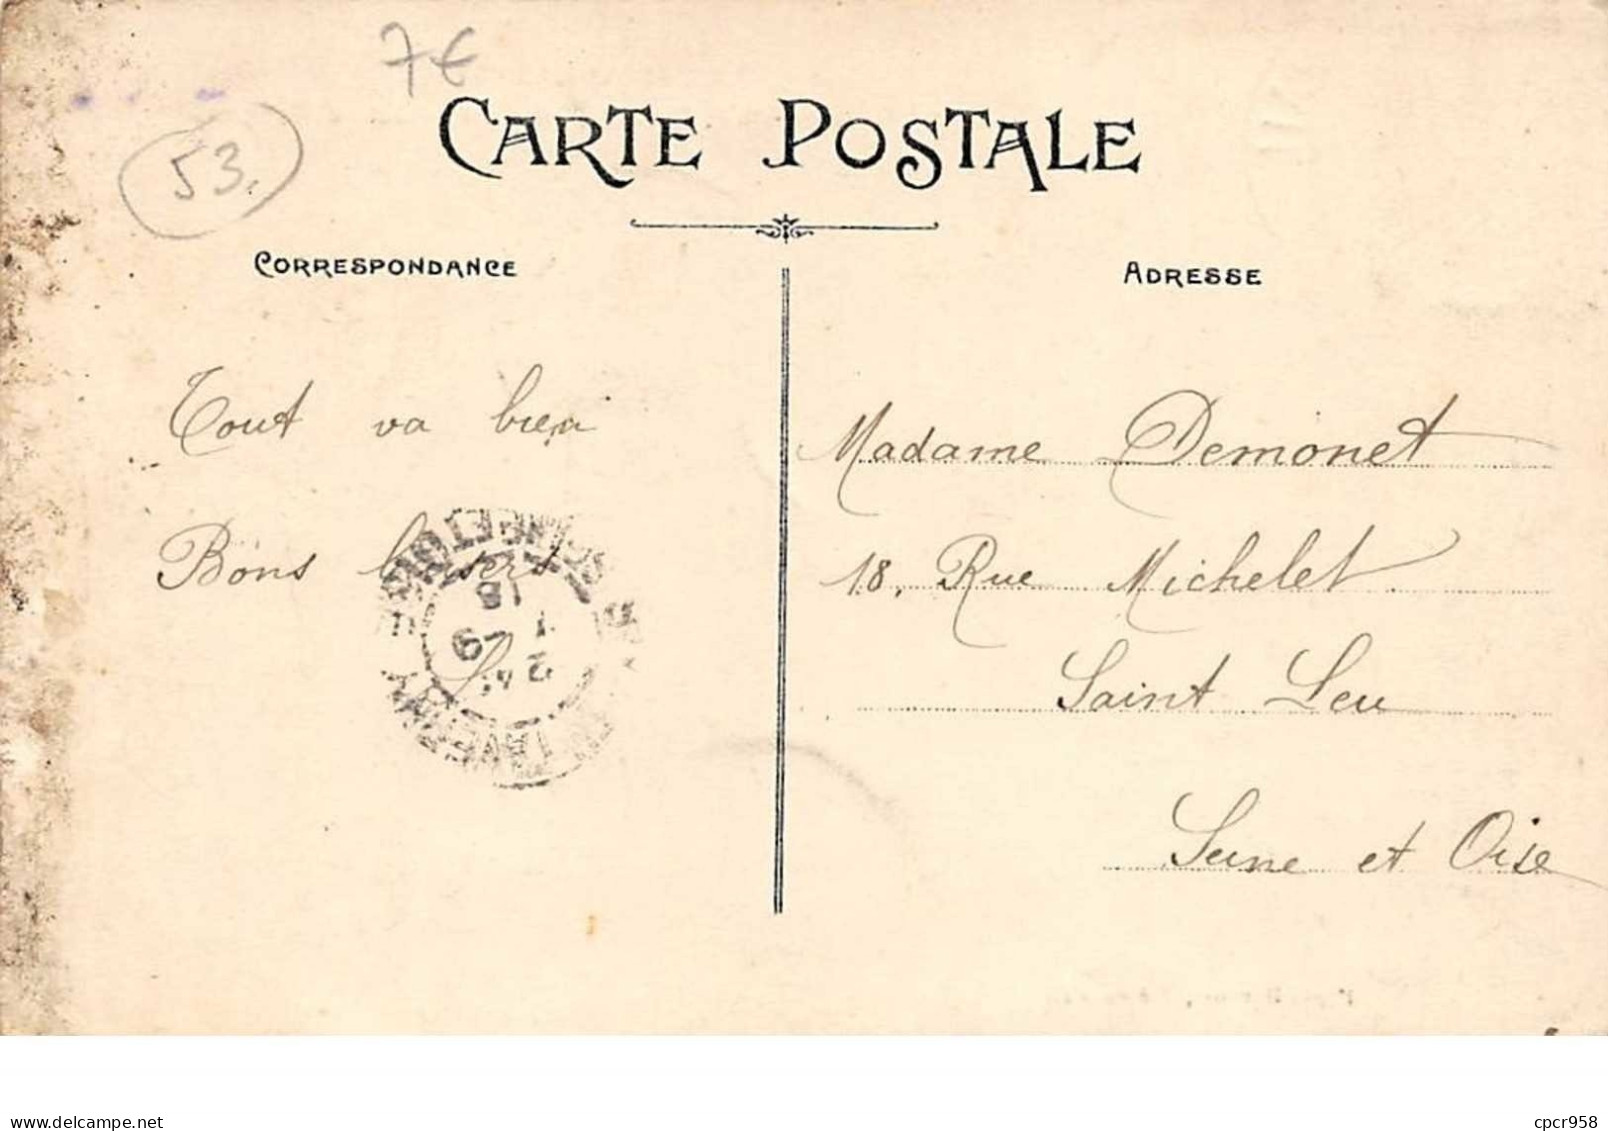 7€
53.
CARTE POSTALE
CORRESPONDANCE
ADRESSE
Tout va bien
Bons baisers
Madame Demonet
18, Rue Michelet
Saint Leu
Seine et Oise
www.delcampe.net
cpcr958